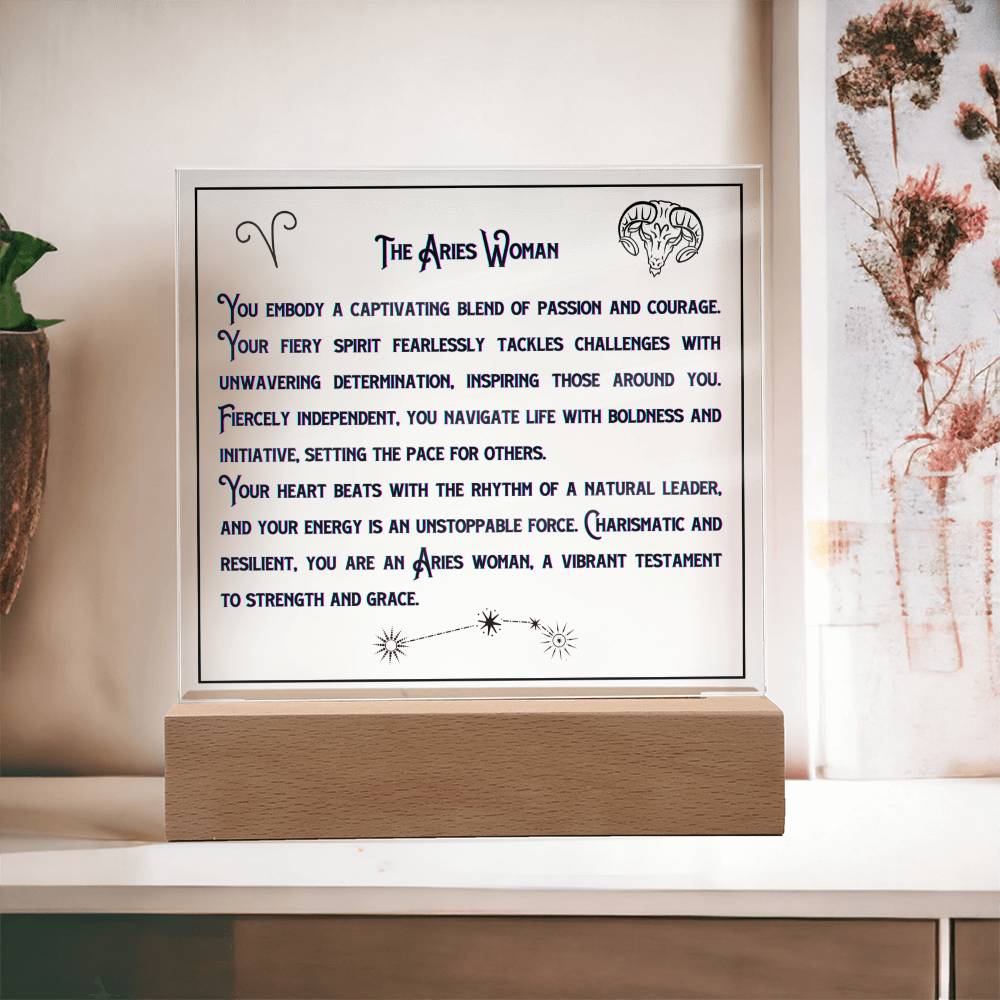 The Aries Woman
You embody a captivating blend of passion and courage.
Your fiery spirit fearlessly tackles challenges with
unwavering determination, inspiring those around you.
Fiercely independent, you navigate life with boldness and
initiative, setting the pace for others.
Your heart beats with the rhythm of a natural leader,
and your energy is an unstoppable force. Charismatic and
resilient, you are an Aries woman, a vibrant testament
to strength and grace.